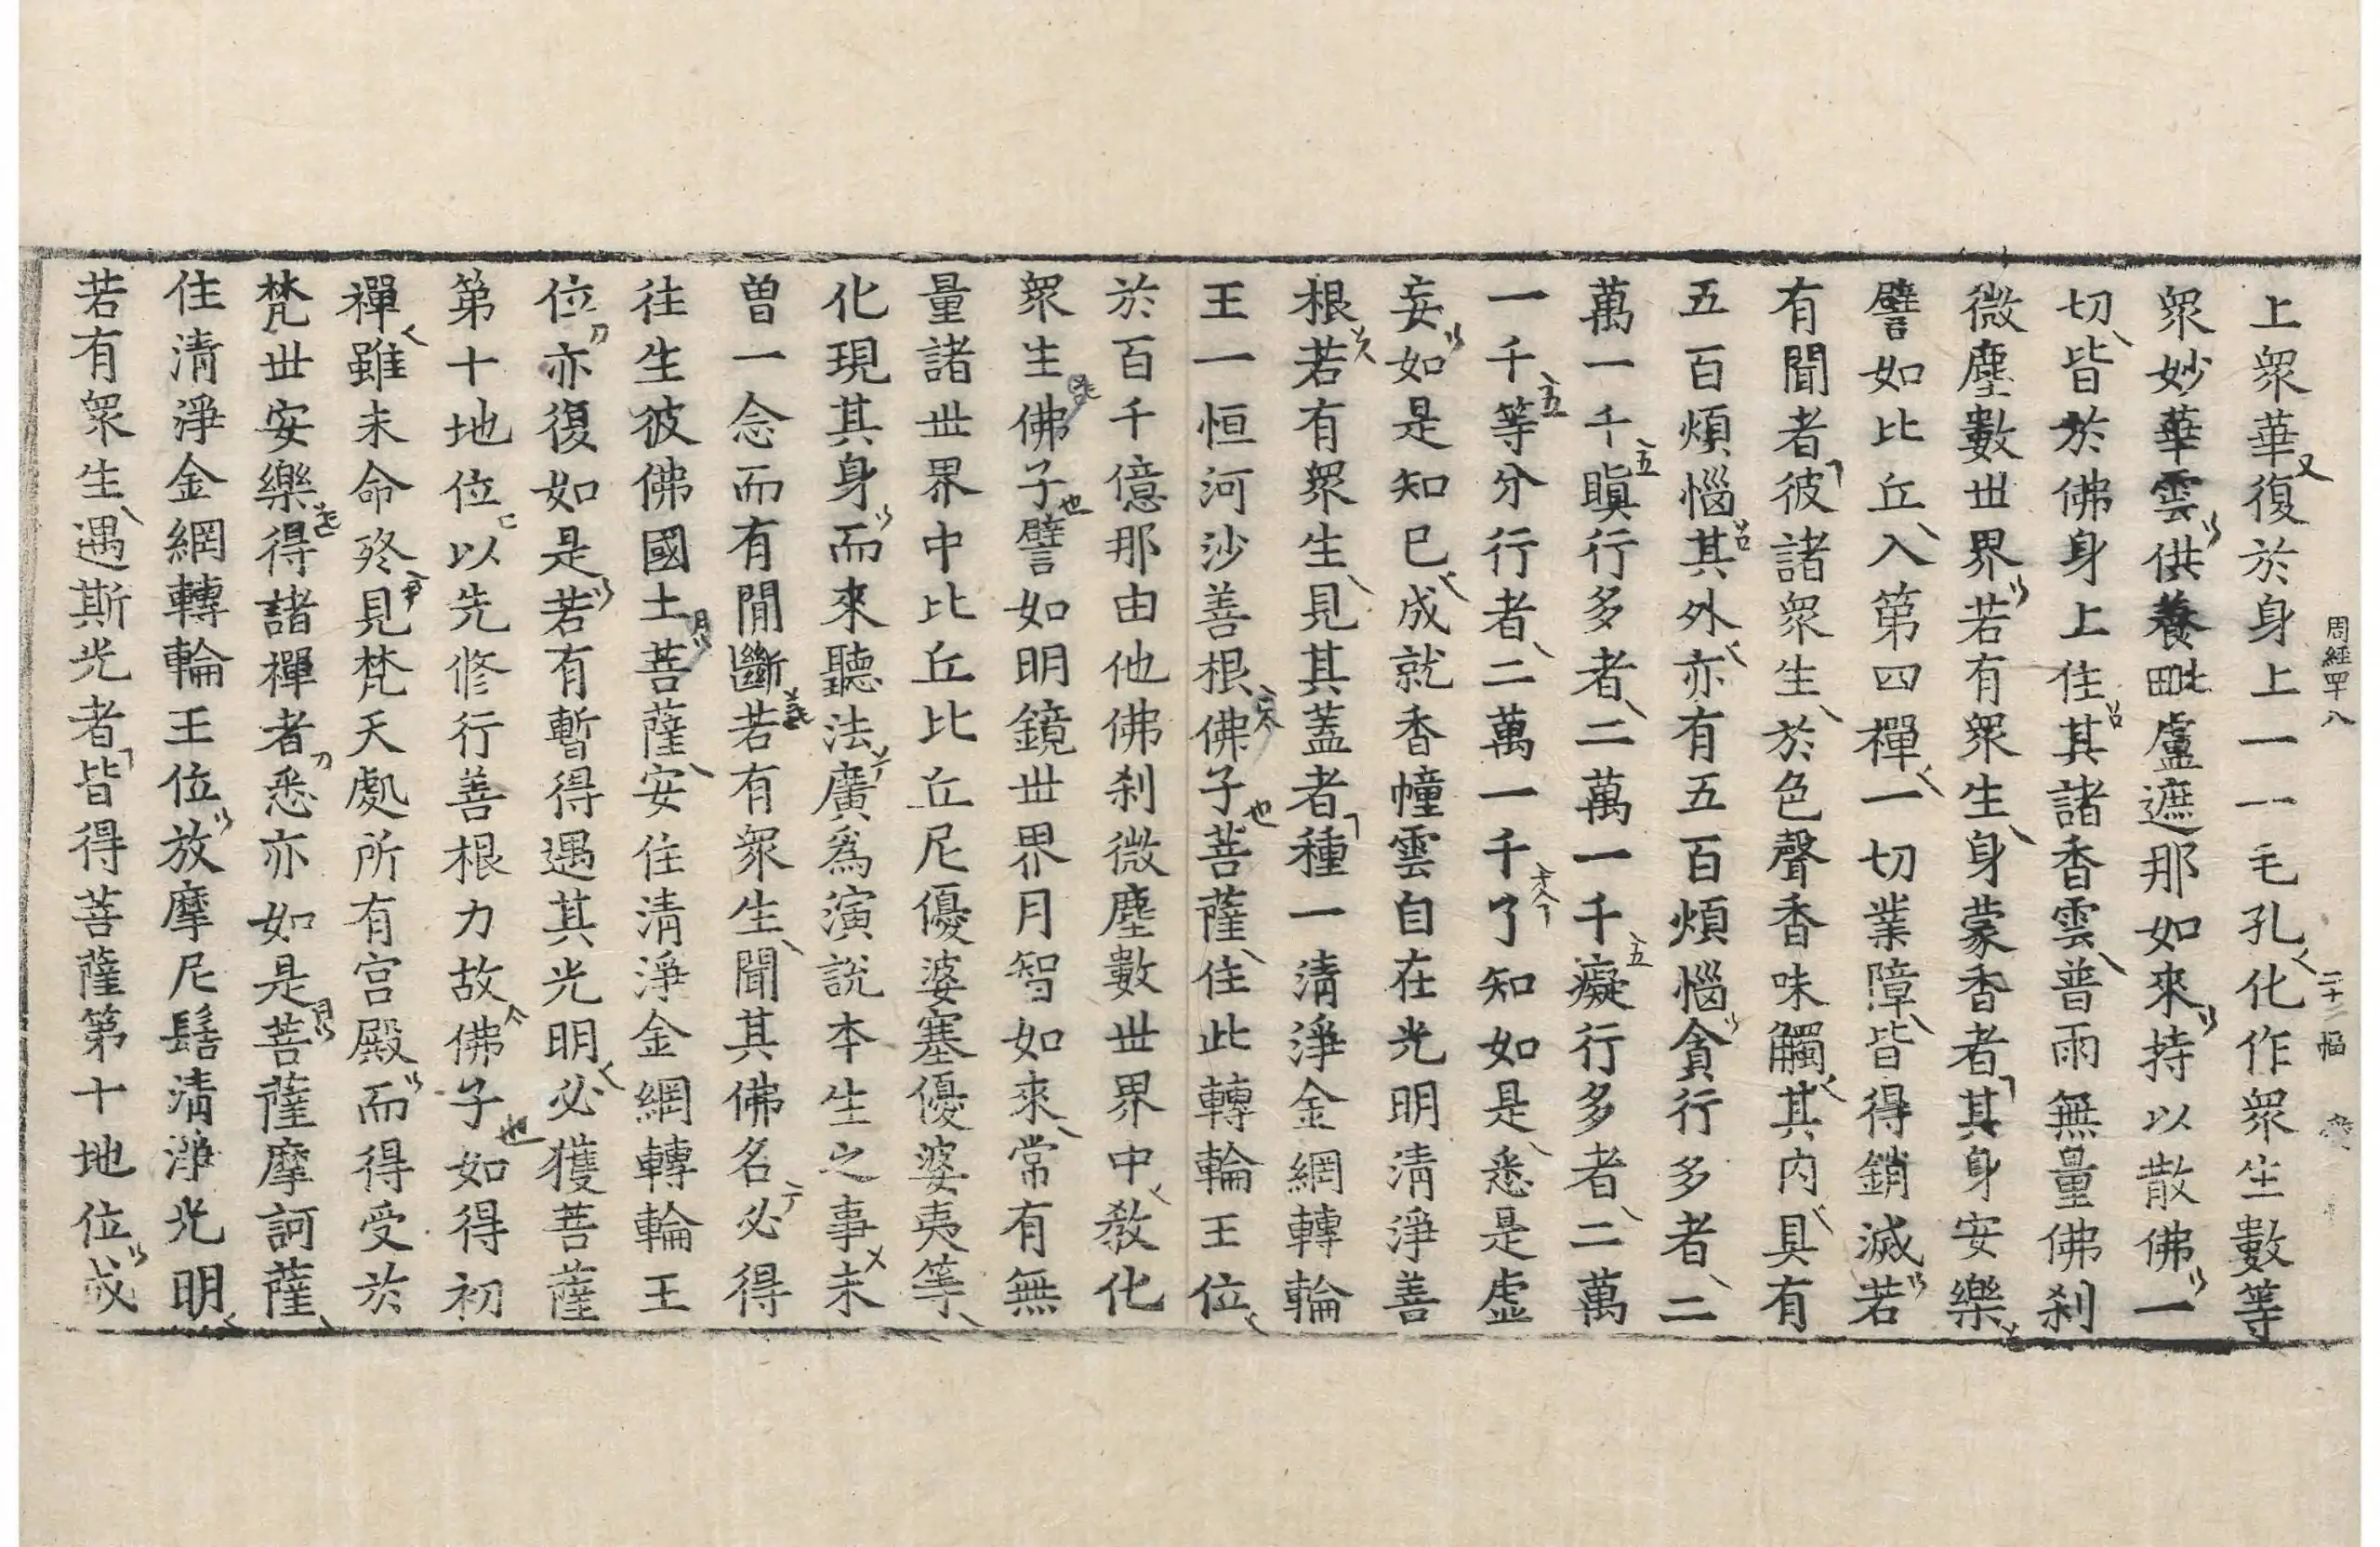 周經四十八 二十二幅
上衆華復於身上一一毛孔化作衆生數等
衆妙華雲供養毗盧遮那如來持以散佛一
切皆於佛身上住其諸香雲普雨無量佛刹
微塵數丗界若有衆生身蒙香者其身安樂
譬如比丘入第四禪一切業障皆得銷滅若
有聞者彼諸衆生於色聲香味觸其内具有
五百煩惱其外亦有五百煩惱貪行多者二
萬一千瞋行多者二萬一千癡行多者二萬
一千等分行者二萬一千了知如是悉是虛
妄如是知已成就香幢雲自在光明清淨善
根若有衆生見其蓋者種一清淨金網轉輪
王一恒河沙善根佛子菩薩住此轉輪王位
於百千億那由他佛刹微塵數丗界中教化
衆生佛子譬如明鏡丗界月智如來常有無
量諸丗界中比丘比丘尼優婆塞優婆夷等
化現其身而來聽法廣爲演說本生之事未
曽一念而有間斷若有衆生聞其佛名必得
往生彼佛國土菩薩安住清淨金網轉輪王
位亦復如是若有暫得遇其光明必獲菩薩
第十地位以先修行善根力故佛子如得初
禪雖未命終見梵天處所有宫殿而得受於
梵丗安樂得諸禪者悉亦如是菩薩摩訶薩
住清淨金網轉輪王位放摩尼髻清淨光明
若有衆生遇斯光者皆得菩薩第十地位成